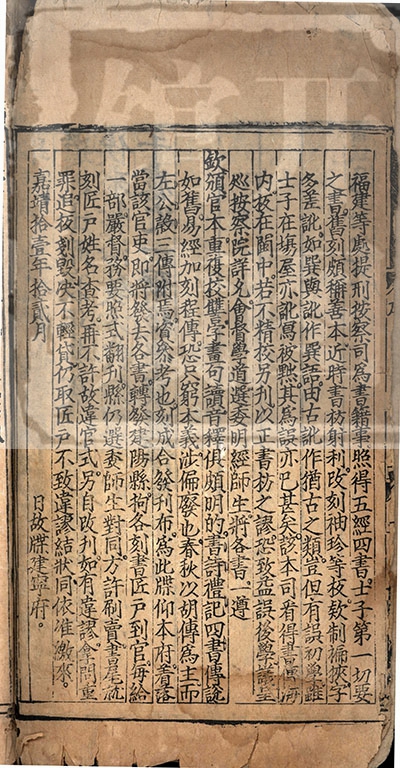 福建等處提刑按察司為書籍事照得五經四書士子第一切要
之書舊刻頗稱善本近時書坊射利改刻袖珍等板款制褊狹字
多差訛如巽與訛作巽語由古訛作猶古之類豈但有誤初學雖
士子在塲屋亦訛寫被黜其為誤亦已甚矣該本司看得書傳海
内板在閩中若不精校另刊以正書坊之謬恐致益誤後學議呈
廵按察院詳允會督學道選委明經師生將各書一遵
欽頒官本重復校讐字畫句讀音釋俱頗明的書詩禮記四書傳說
如舊易經加刻程傳恐只窮本義涉偏廢也春秋以胡傳為主而
左公穀三傳附焉資叅考也刻成合發刊布為此牒仰本府着落
當該官吏即將發去各書轉發建陽縣拘各刻書匠戶到官每給
一部嚴督務要照式翻刊縣仍選委師生對同方許刷賣書尾就
刻匠戶姓名查考再不許故違官式另自改刊如有違謬拿問重
罪追板剗毀決不輕貸仍取匠戶不致違謬結狀同依准繳來
嘉靖拾壹年拾貳月　日故牒建寧府。